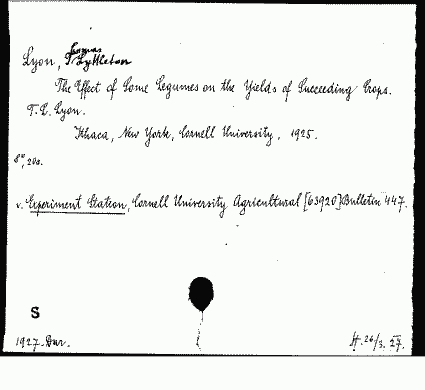 Lyon, Thomas Lyttleton
The Effect of Some Legumes on the Yields of Succeeding Crops.
T. L. Lyon.
Ithaca, New York, Cornell University, 1925.
8°, 20s.
v. Experiment Station, Cornell University Agricultural [63920] Bulletin 447.
S
1927. Dar.
H. 26/3. 27.